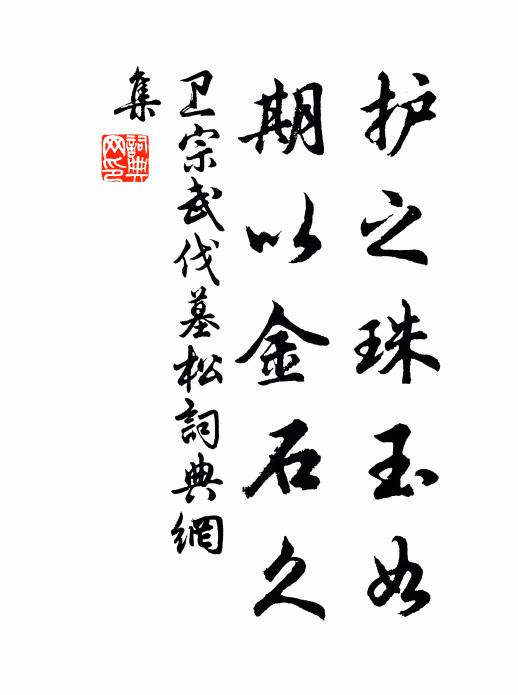 护之珠玉如
期以金石久
卫宗武伐墓松词典網
集
詞典
网印